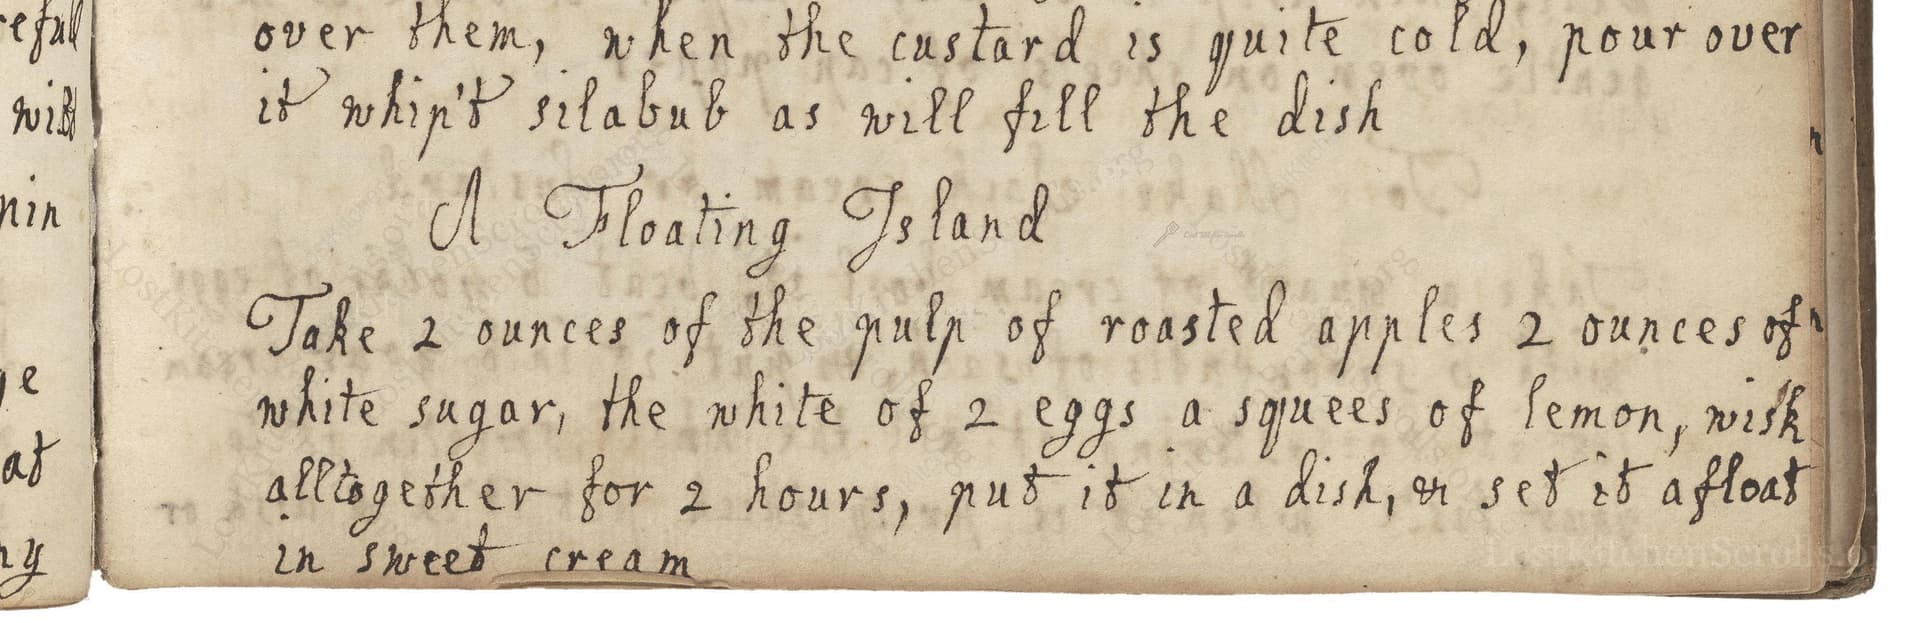 over them, when the custard is quite cold, pour over
it whip't silabub as will fill the dish
A Floating Island
Take 2 ounces of the pulp of roasted apples 2 ounces of
white sugar, the white of 2 eggs a squees of lemon, wisk
alltogether for 2 hours, put it in a dish, & set it afloat
in sweet cream
LostKitchenScrolls.or